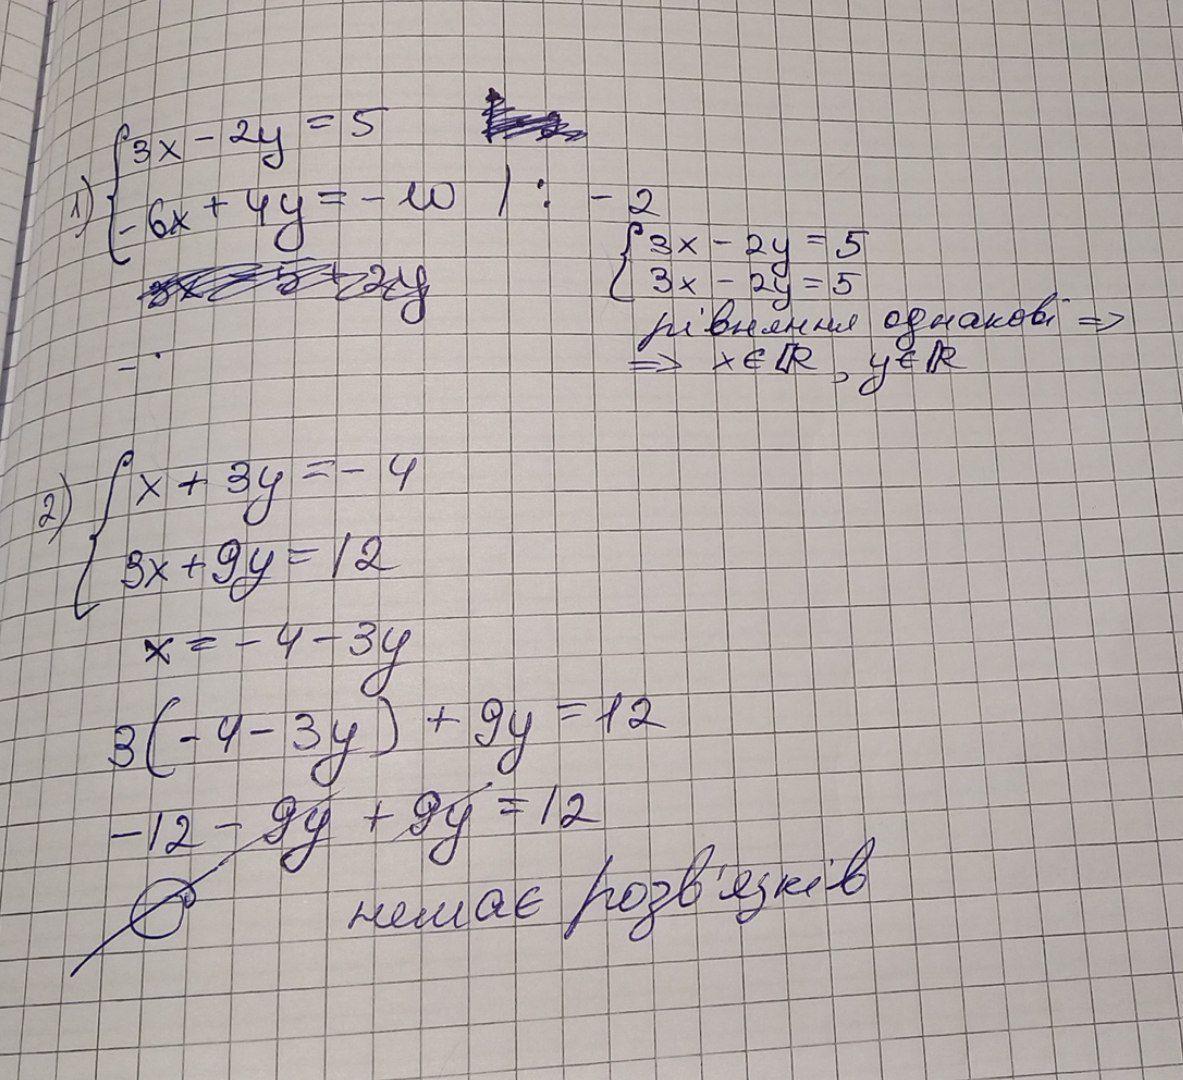 1) { 3x - 2y = 5
-6x + 4y = -10 | : -2
{ 3x - 2y = 5
3x - 2y = 5
рівняння однакові =>
=> x ∈ ℝ, y ∈ ℝ
2) { x + 3y = -4
3x + 9y = 12
x = -4 - 3y
3(-4 - 3y) + 9y = 12
-12 - 9y + 9y = 12
∅ немає розв'язків